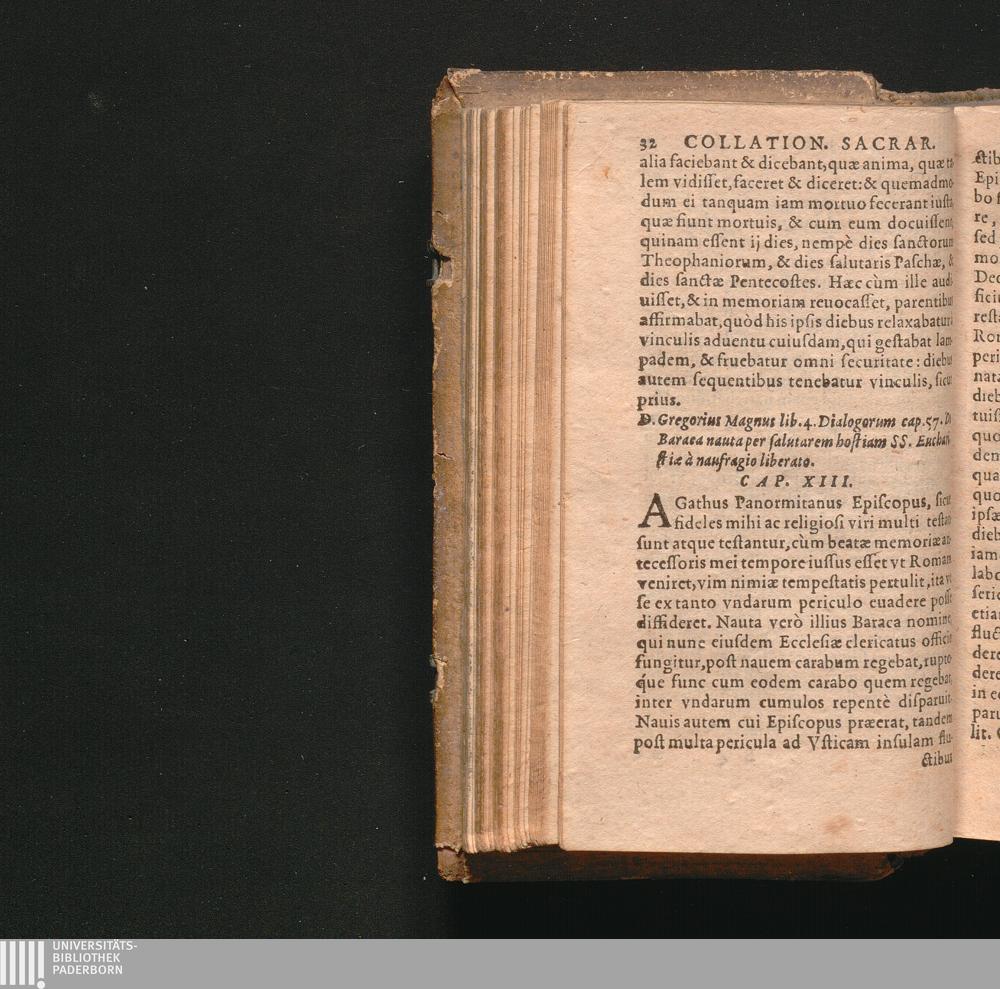 32 COLLATION. SACRAR.
alia faciebant & dicebant, quæ anima, quæ
lem vidiſſet, faceret & diceret: & quemadmo
dum ei tanquam iam mortuo fecerant iuſta,
quæ fiunt mortuis, & cum eum docuiſſent
quinam eſſent ij dies, nempè dies ſanctorum
Theophaniorum, & dies ſalutaris Paſchæ, &
dies ſanctæ Pentecoſtes. Hæc cùm ille audi
uiſſet, & in memoriam reuocaſſet, parentibus
affirmabat, quòd his ipſis diebus relaxabatur
vinculis aduentu cuiuſdam, qui geſtabat lam
padem, & fruebatur omni ſecuritate: diebus
autem ſequentibus tenebatur vinculis, ſicut
prius.
D. Gregorius Magnus lib. 4. Dialogorum cap. 57. De
Baraca nauta per ſalutarem hoſtiam SS. Euchari
ſtiæ à naufragio liberato.
CAP. XIII.
AGathus Panormitanus Epiſcopus, ſicut
fideles mihi ac religioſi viri multi teſtati
ſunt atque teſtantur, cùm beatæ memoriæ an-
teceſſoris mei tempore iuſſus eſſet vt Romam
veniret, vim nimiæ tempeſtatis pertulit, ita vt
ſe ex tanto vndarum periculo euadere poſſe
diffideret. Nauta verò illius Baraca nomine,
qui nunc eiuſdem Eccleſiæ clericatus officio
fungitur, poſt nauem carabum regebat, rupto
q́ue fune cum eodem carabo quem regebat,
inter vndarum cumulos repentè diſparuit.
Nauis autem cui Epiſcopus præerat, tandem
poſt multa pericula ad Vſticam inſulam flu-
ctibus
ctib
Epi
bo
re,
ſed
mo
Dec
ficit
reſt
Ron
peri
nata
dieb
tuiſ
quo
dem
qua
quo
ipſæ
dieb
iam
labo
ſerie
etia
fluct
dere
dere
in e
paru
lit.
UNIVERSITÄTS-
BIBLIOTHEK
PADERBORN